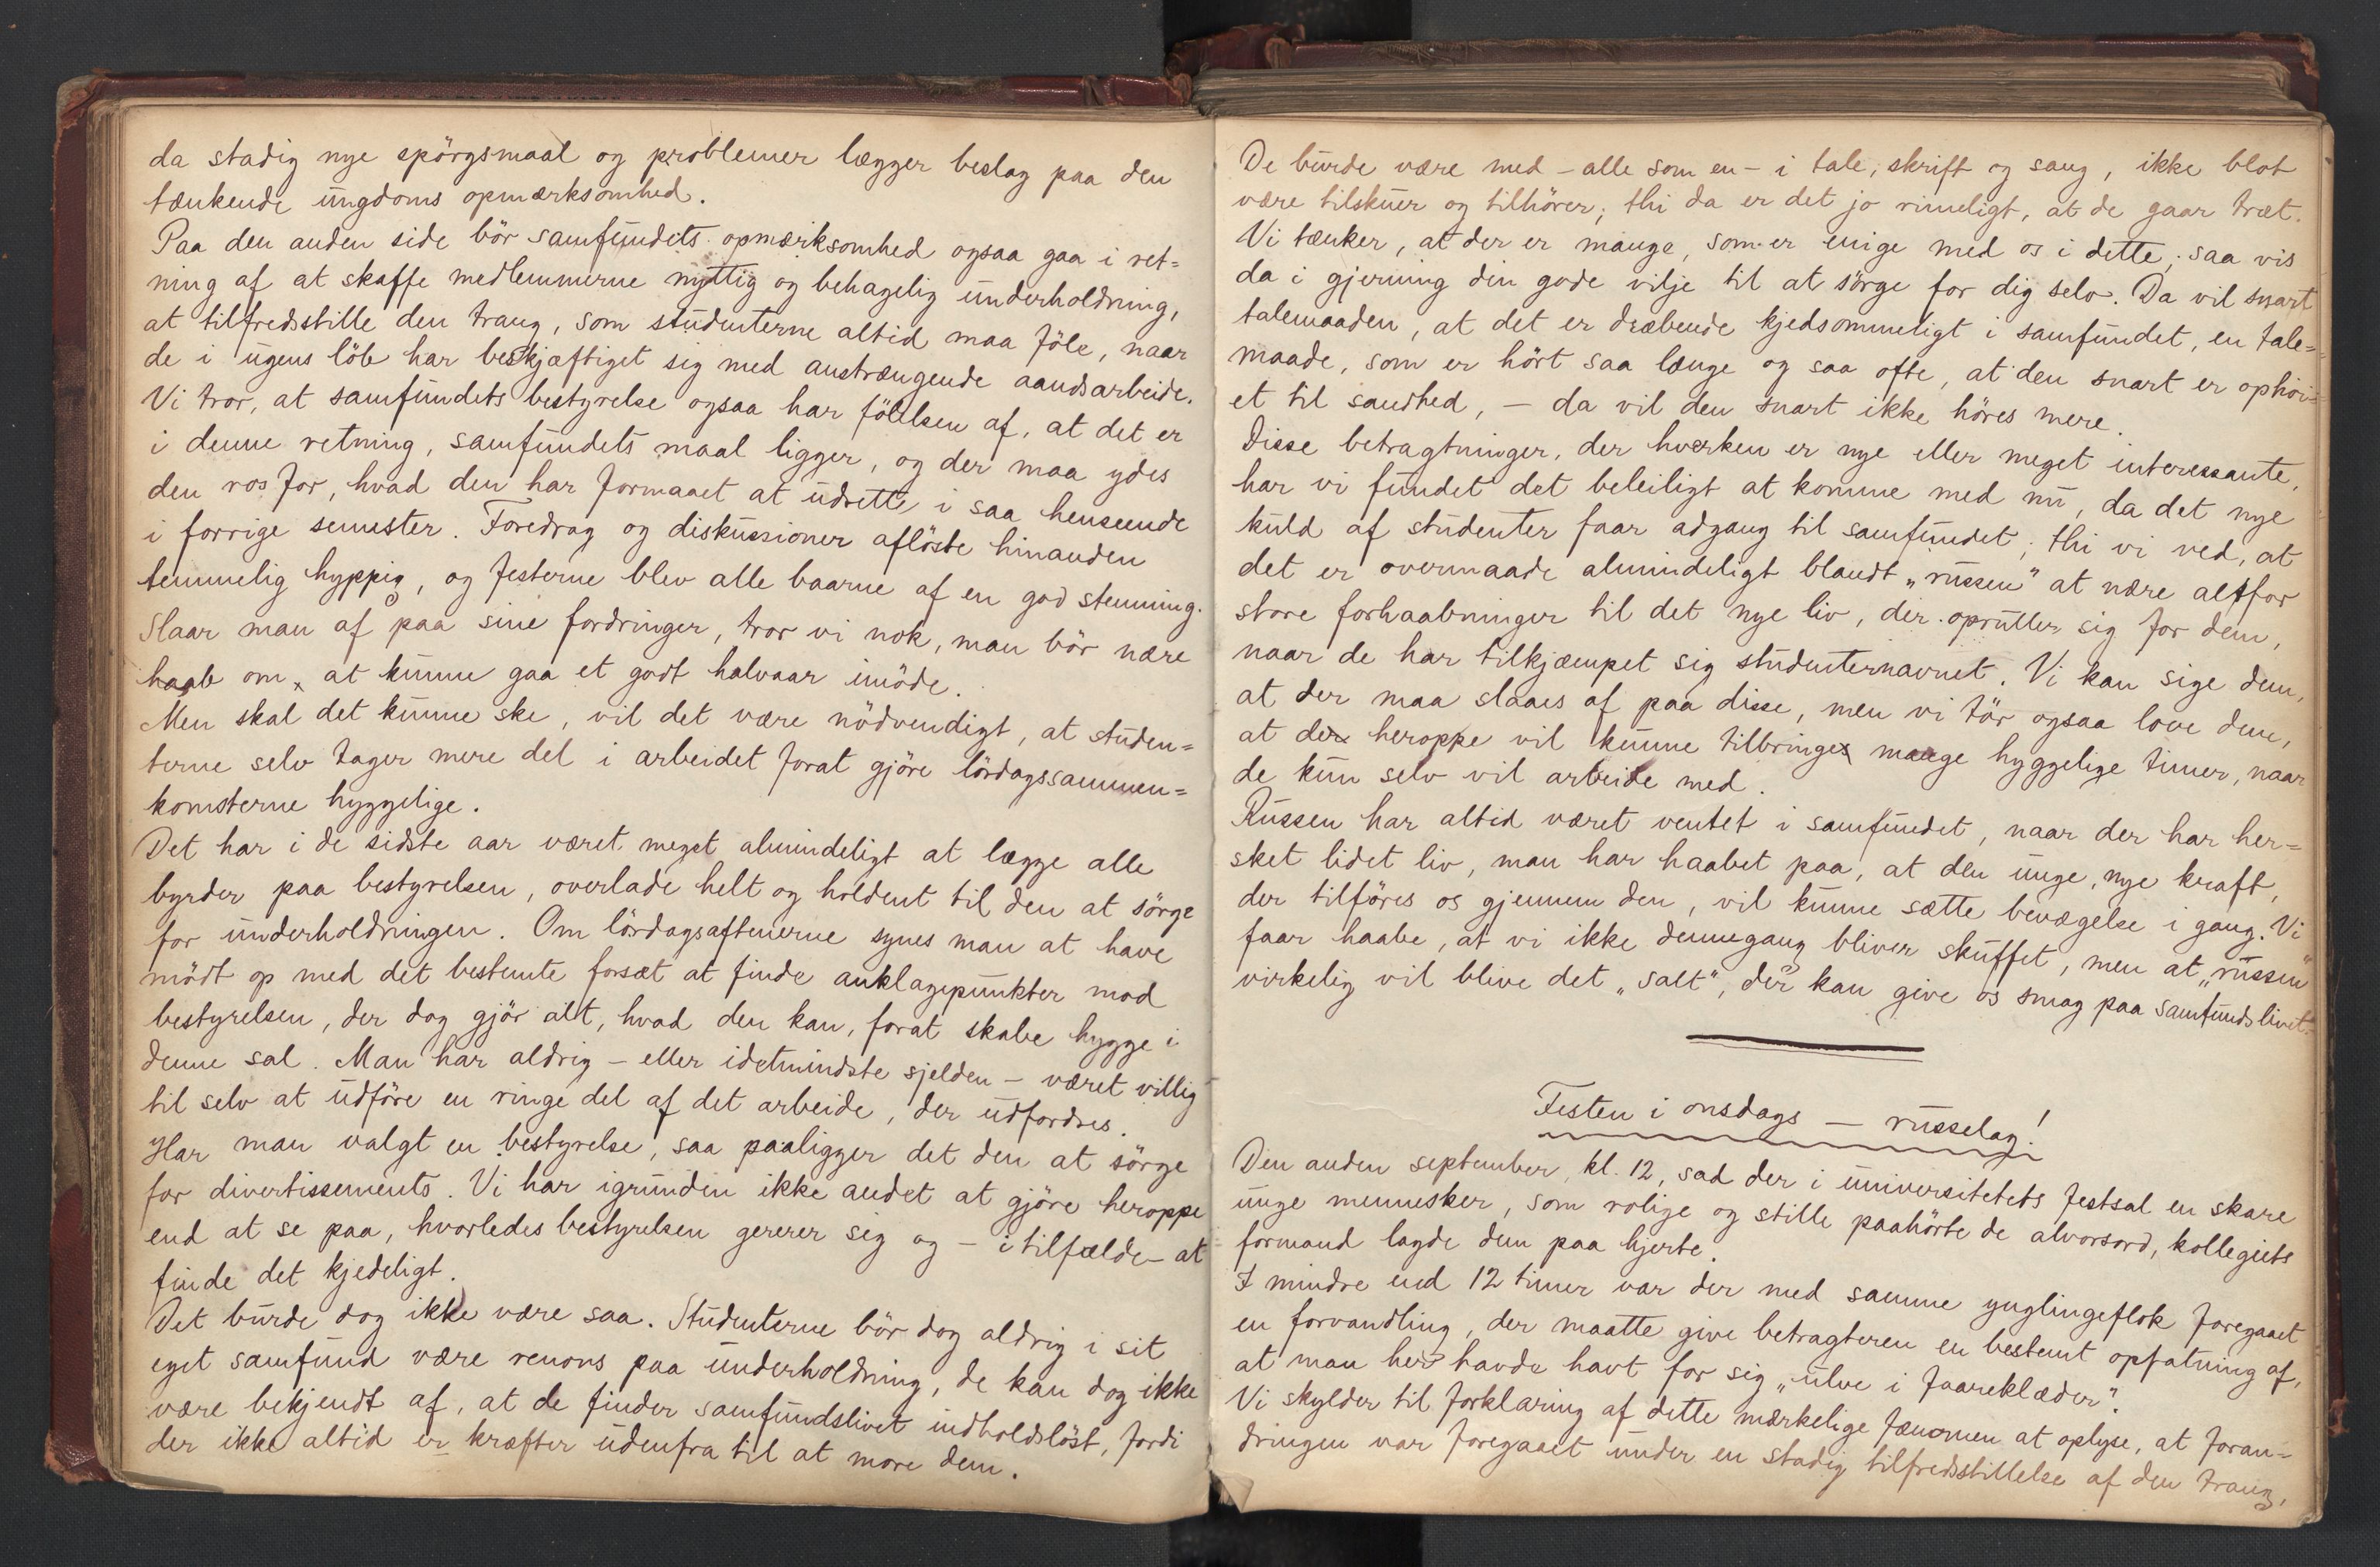 da stadig nye spörgsmaal og problemer lægger beslag paa den
tænkende ungdoms opmærksomhed.
Paa den anden side bör samfundets opmærksomhed ogsaa gaa i ret=
ning af at skaffe medlemmerne nyttig og behagelig underholdning,
at tilfredsstille den trang, som studenterne altid maa föle, naar
de i ugens löb har beskjæftiget sig med anstrængende aandsarbeide.
Vi tror, at samfundets bestyrelse ogsaa har fölelsen af, at det er
i denne retning, samfundets maal ligger, og der maa ydes
den ros for, hvad den har formaaet at udrette i saa henseende
i forrige semester. Foredrag og diskussioner aflöste hinanden
temmelig hyppig, og festerne blev alle baarne af en god stemning.
Slaar man af paa sine fordringer, tror vi nok, man bör nære
haab om, at kunne gaa et godt halvaar imöde.
Men skal det kunne ske, vil det være nödvendigt, at studen=
terne selv tager mere del i arbeidet forat gjöre lördagssammen=
komsterne hyggelige.
Det har i de sidste aar været meget almindeligt at lægge alle
byrder paa bestyrelsen, overlade helt og holdent til den at sörge
for underholdningen. Om lördagsaftenerne synes man at have
mödt op med det bestemte forsæt at finde anklagepunkter mod
bestyrelsen, der dog gjör alt, hvad den kan, forat skabe hygge i
denne sal. Man har aldrig – eller idetmindste sjelden – været villig
til selv at udföre en ringe del af det arbeide, der udfordres.
Har man valgt en bestyrelse, saa paaligger det den at sörge
for divertissements. Vi har igrunden ikke andet at gjöre heroppe
end at se paa, hvorledes bestyrelsen gererer sig og – i tilfælde – at
finde det kjedeligt.
Det burde dog ikke være saa. Studenterne bör dog aldrig i sit
eget samfund være renons paa underholdning, de kan dog ikke
være bekjendt af, at de finder samfundslivet indholdslöst, fordi
der ikke altid er kræfter udenfra til at more dem.
De burde være med – alle som en – i tale, skrift og sang, ikke blot
være tilskuer og tilhörer; thi da er det jo rimeligt, at de gaar træt.
Vi tænker, at der er mange, som er enige med os i dette; saa vis
da i gjerning din gode vilje til at sörge for dig selv. Da vil snart
talemaaden, at det er dræbende kjedsommeligt i samfundet, en tale=
maade, som er hört saa længe og saa ofte, at den snart er ophöi=
et til sandhed, – da vil den snart ikke höres mere.
Disse betragtninger, der hverken er nye eller meget interessante,
har vi fundet det beleiligt at komme med nu, da det nye
kuld af studenter faar adgang til samfundet; thi vi ved, at
det er overmaade almindeligt blandt „russen" at nære altfor
store forhaabninger til det nye liv, der oprulles sig for dem,
naar de har tilkjæmpet sig studenternavnet. Vi kan sige dem,
at der maa slaaes af paa disse, men vi tör ogsaa love dem,
at der heroppe vil kunne tilbringes mange hyggelige timer, naar
de kun selv vil arbeide med.
Russen har altid været ventet i samfundet, naar der har her=
sket lidet liv, man har haabet paa, at den unge, nye kraft,
der tilföres os gjennem den, vil kunne sætte bevægelse i gang. Vi
faar haabe, at vi ikke dennegang bliver skuffet, men at „russen"
virkelig vil blive det „salt", der kan give os smag paa samfundslivet.
Festen i onsdags – russelag!
Den anden september, kl. 12, sad der i universitetets festsal en skare
unge mennesker, som rolige og stille paahörte de alvorsord, kollegiets
formand lagde dem paa hjerte.
I mindre end 12 timer var der med samme ynglingeflok foregaaet
en forvandling, der maatte give betragteren en bestemt opfatning af,
at man her havde havt for sig „ulve i faareklæder".
Vi skylder til forklaring af dette mærkelige fænomen at oplyse, at foran=
dringen var foregaaet under en stadig tilfredsstillelse af den trang,